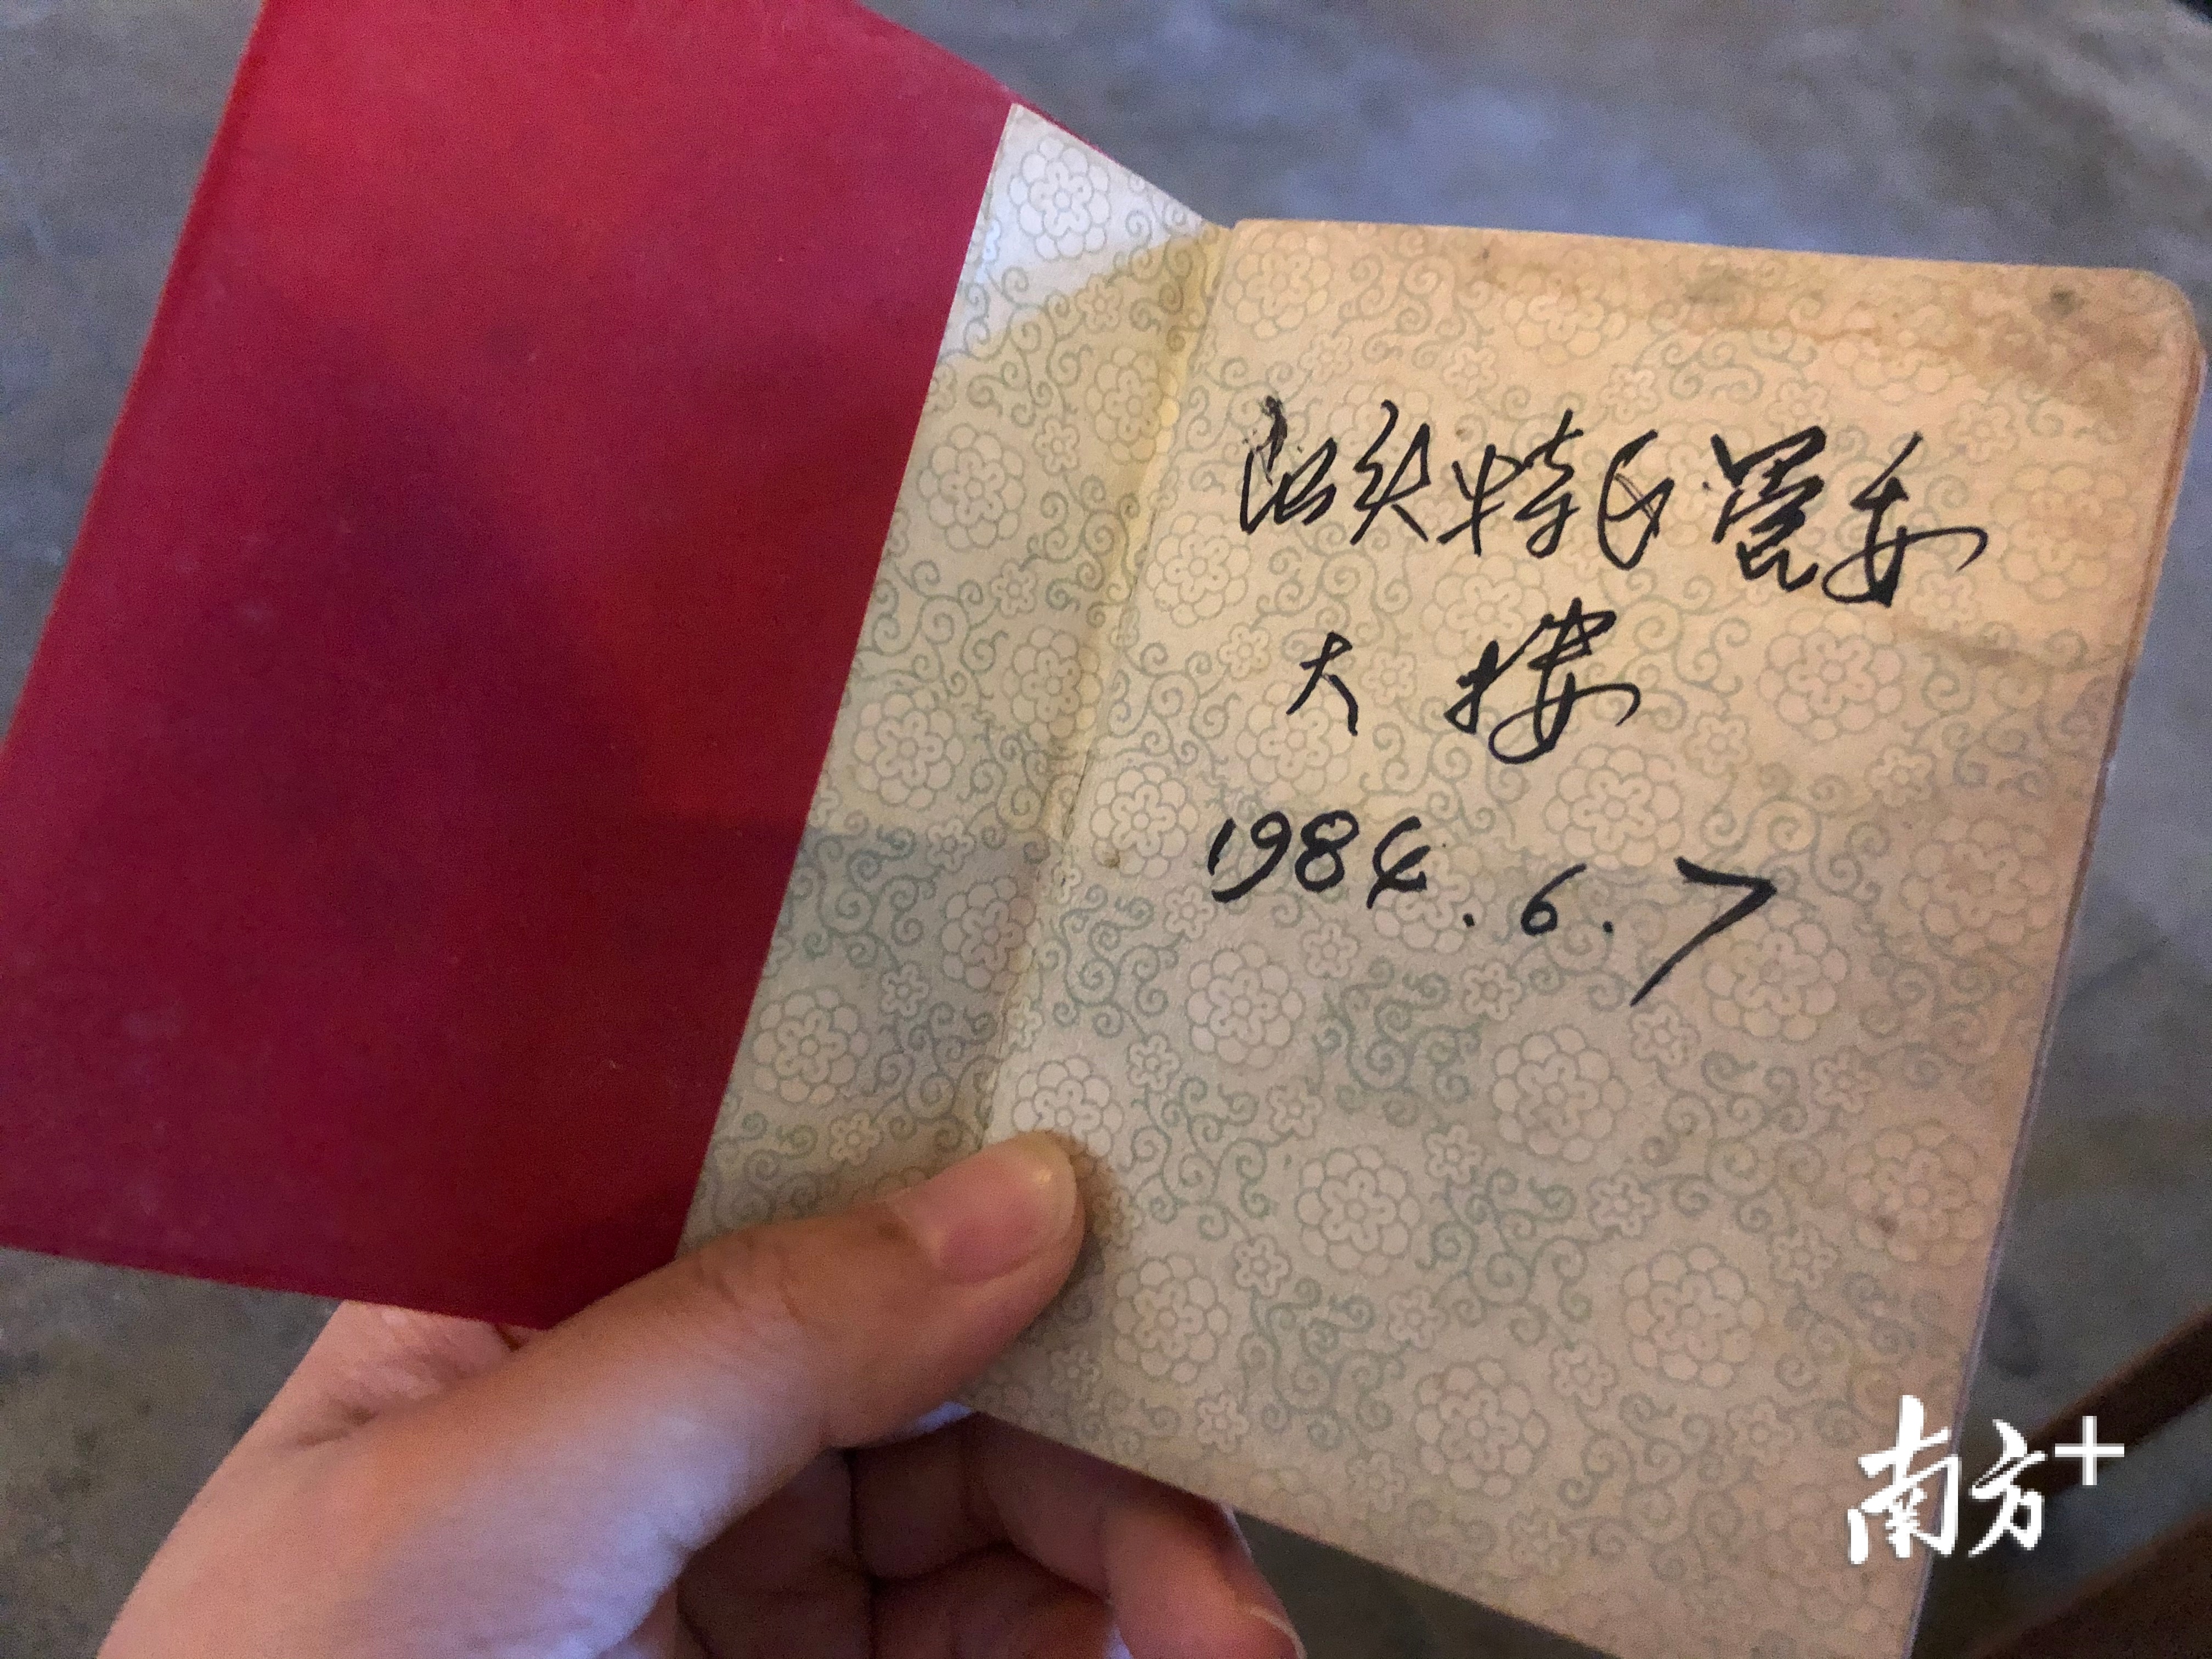 汕头特区管委
大楼
1984.6.7
南方+